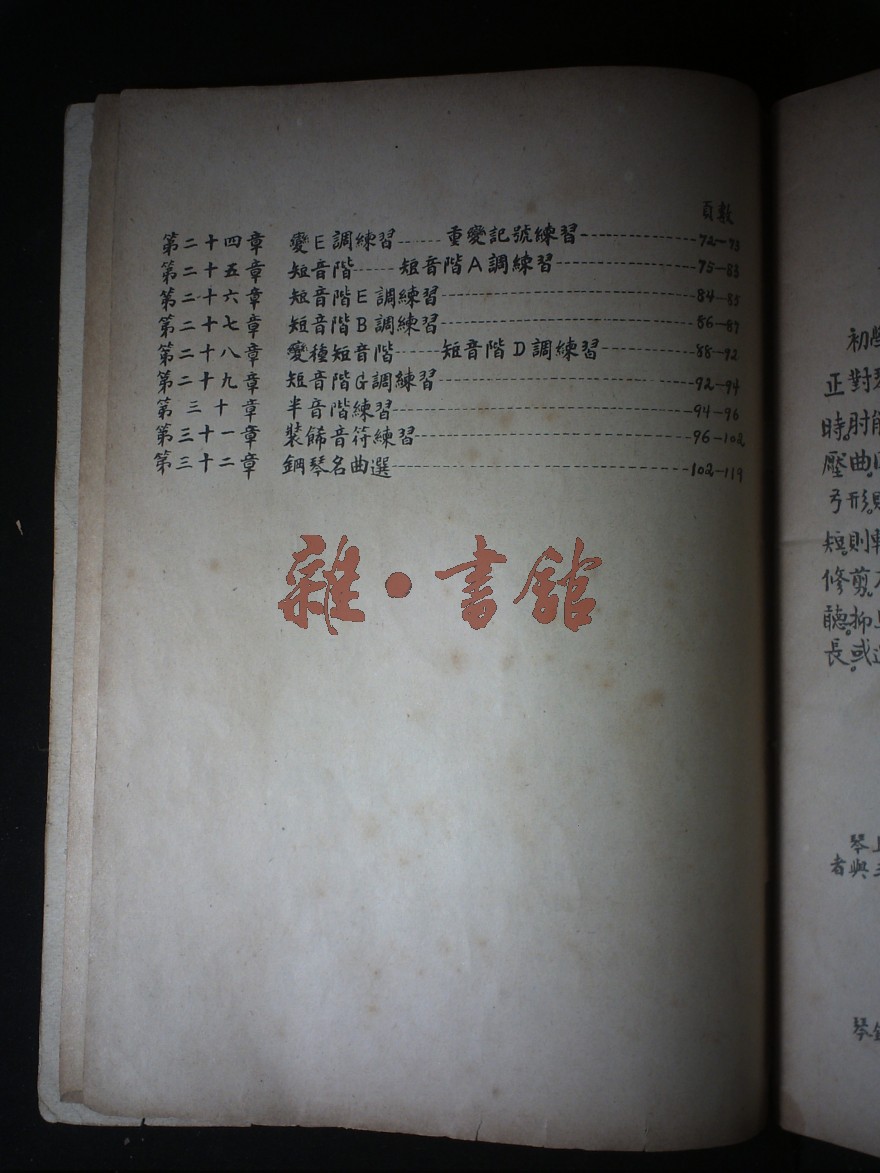 頁數
第二十四章 變E調練習……重變記號練習 72—73
第二十五章 短音階……短音階A調練習 75—83
第二十六章 短音階E調練習 84—85
第二十七章 短音階B調練習 86—87
第二十八章 變種短音階……短音階D調練習 88—92
第二十九章 短音階G調練習 92—94
第三十章 半音階練習 94—96
第三十一章 裝飾音符練習 96—102
第三十二章 鋼琴名曲選 102—119
雜·書館
初學
正對琴
時。肘
壓曲。
弓形。
短。則
修剪。
聽。抑
長。或
琴上
者與
琴